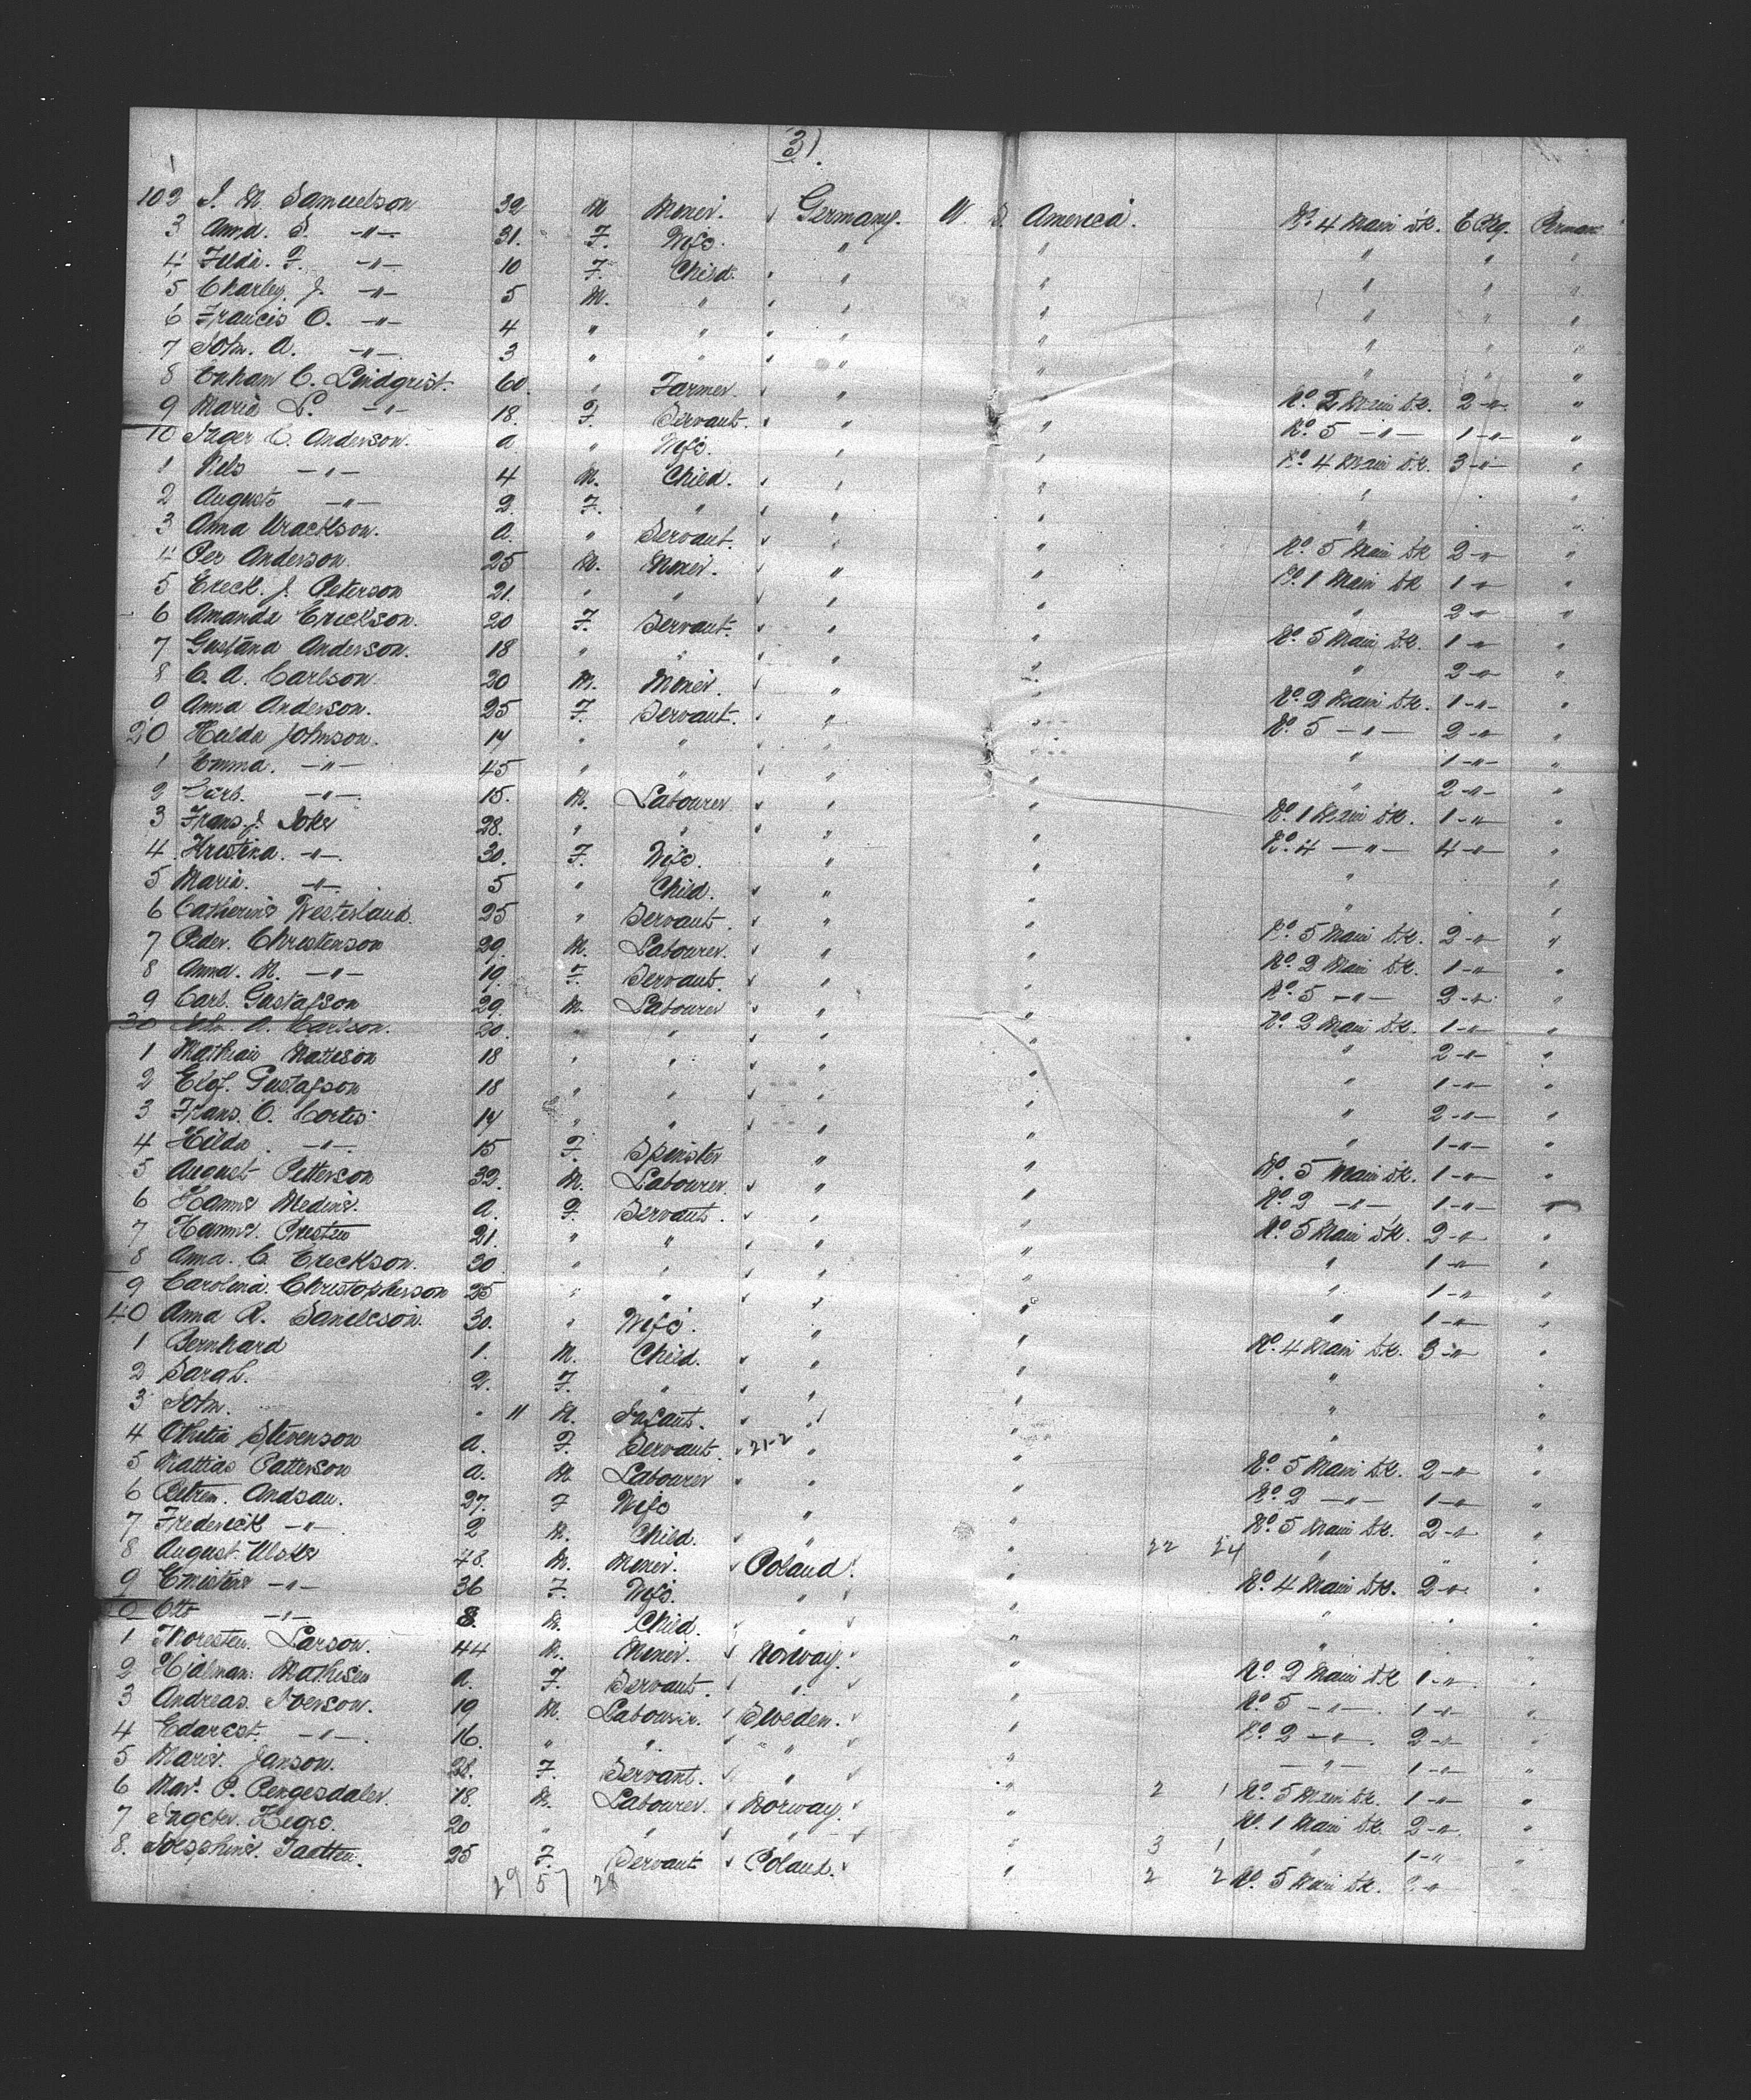 3).
102 J. M Samuelson 32 M Miner. Germany. U. S. America. No. 4 Main Dk. 6 Pkg. Perman
3 Anna. S. -"- 31. F. Wife. " " " " "
4 Hilda. F. -"- 10 F. Child. " " " " "
5 Charley. J. -"- 5 M. " " " " " "
6 Francis O. -"- 4 " " " " " " "
7 John. A. -"- 3 " " " " " " "
8 C. Lindqvist. 60. " Farmer. " " No. 2 Main Dk. 2 -"- "
9 Maria L. -"- 18. F. Servant. " " No. 5 -"- 1 -"- "
10 Inger C. Anderson. a " Wife. " " No. 4 Main Dk. 3 -"- "
1 Nels -"- 4 M. Child. " " " "
2 Augusta -"- 2. F. " " " " "
3 Anna a. " Servant. " " No. 5 Main Dk 2 -"- "
4 Per Anderson. 25 M. Miner. " " No. 1 Main Dk 1 -"- "
5 Ereck. J. Peterson 21. " " " " " 2 -"- "
6 Amanda Erickson. 20 F. Servant. " " No. 5 Main Dk. 1 -"- "
7 Gustava Anderson. 18 " " " " " 2 -"- "
8 C. A. Carlson. 20 M. Miner. " " No. 2 Main Dk. 1 -"- "
9 Anna Anderson. 25 F. Servant. " " No. 5 -"- 2 -"- "
20 Hulda Johnson. 17 " " " " " 1 -"- "
1 Emma. -"- 45 " " " " " 2 -"- "
2 Carl. -"- 15. M. Labourer " " No. 1 Main Dk. 1 -"- "
3 Frans. J. 28. " " " " No. 4 -"- 4 -"- "
4 Kristina. -"- 30. F. Wife. " " " "
5 Maria. -"- 5 " Child. " " " "
6 Catherine Westerlaud. 25 " Servant. " " No. 5 Main Dk. 2 -"- "
7 Peder. Christenson 29. M. Labourer. " " No. 2 Main Dk. 1 -"- "
8 Anna. M. -"- 19. F. Servant. " " No. 5 -"- 2 -"- "
9 Carl. Gustafson 29. M. Labourer " " No. 2 Main Dk. 1 -"- "
30 John. A. Carlson. 20. " " " " " 2 -"- "
1 Mathias Matteson 18 " " " " " 1 -"- "
2 Elof. Gustafson 18 " " " " " 2 -"- "
3 Frans. C. 17 " " " " " 1 -"- "
4 Hilda. -"- 15 F. Spinster " " No. 5 Main Dk. 1 -"- "
5 August Petterson 32. M. Labourer. " " No. 2 -"- 1 -"- "
6 Hanna a. F. Servant. " " No. 5 Main Dk. 2 -"- "
7 Hanna. 21. " " " " " 1 -"- "
8 Anna. C. Ereckson. 30 " " " " " 1 -"- "
9 Carolina. Christopherson 25 " " " " " 1 -"- "
40 Anna R. 30. " Wife. " " No. 4 Main Dk. 3 -"- "
1 Bernhard 1. M. Child. " " " "
2 Sarah. 2. F. " " " " "
3 John. " 11 M. Infant. " " " "
4 Stevenson a. F. Servant. 21-2 " " No. 5 Main Dk. 2 -"- "
5 Mattias Patterson a. M. Labourer " " No. 2 -"- 1 -"- "
6 Andsau. 27. F Wife " " No. 5 Main Dk. 2 -"- "
7 Frederick -"- 2 M. Child. " " 22 24 " " "
8 August. 48. M. Miner. Poland. " No. 4 Main Dk. 2 -"- "
9 -"- 36 F. Wife. " " " " "
0 Otto -"- 8. M. Child. " " " "
1 Thoresten. Larson. 44 M. Miner. Norway. " No. 2 Main Dk 1 -"- "
2 Hjalman. Mathisen a. F. Servant. " " No. 5 -"- 1 -"- "
3 Andreas. Iverson. 19 M. Labourer. Sweden. " No. 2 -"- 2 -"- "
4 -"- 16. " " " " -"- 1 -"- "
5 Marie. Janson. 28. F. Servant. " " 2 1 No. 5 Main Dk. 1 -"- "
6 P. Pengesdalen. 18. M. Labourer. Norway. " No. 1 Main Dk. 2 -"- "
7 20 " " " " 3 1 " 1 -"- "
8. Josephine. 25 F. Servant Poland. " 2 2 No. 5 Main Dk.
29 57 28